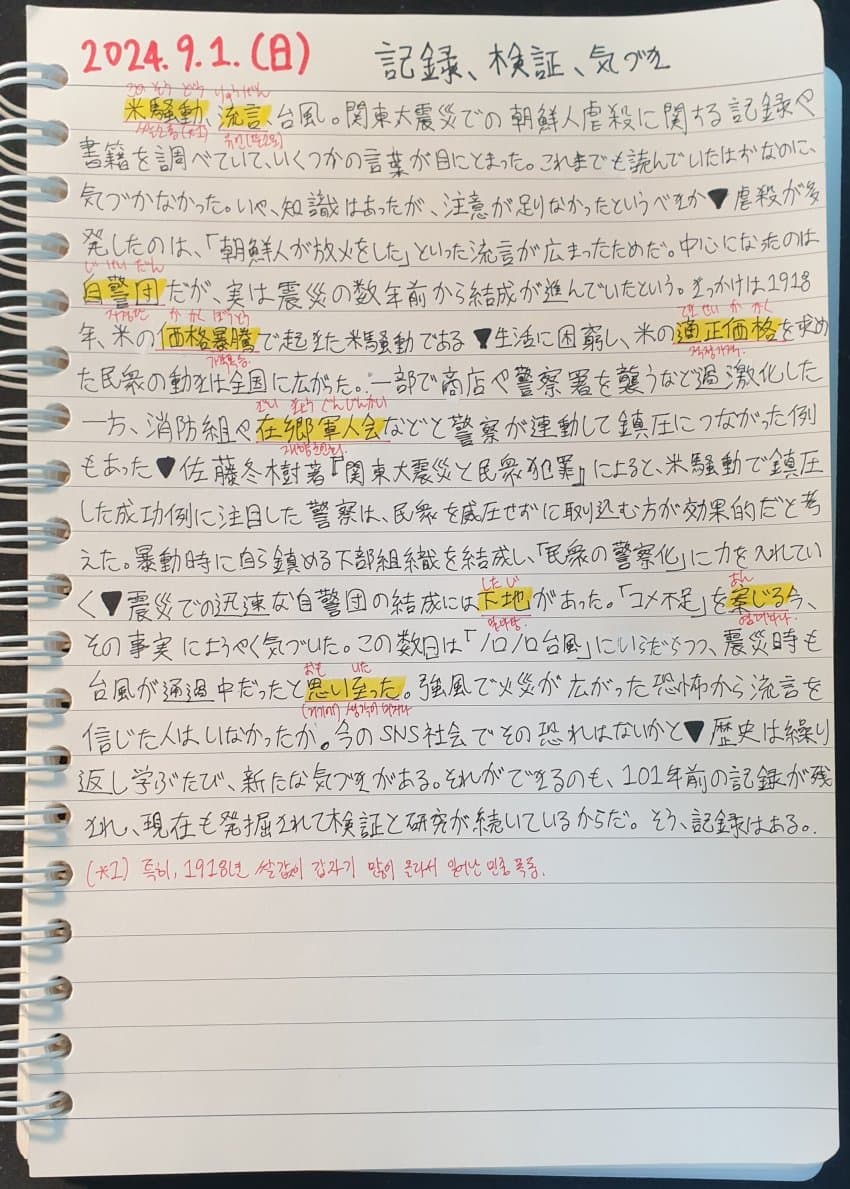 2024.9.1.(日) 記録、検証、気づき
こめ そう どう りゅうげん
米騒動、流言、台風。関東大震災での朝鮮人虐殺に関する記録や
쌀소동(*1) 유언(뜬소문)
書籍を調べていて、いくつかの言葉が目にとまった。これまでも読んでいたはずなのに、
気づかなかった。いや、知識はあったが、注意が足りなかったというべきか▼虐殺が多
発したのは、「朝鮮人が放火をした」といった流言が広まったためだ。中心になったのは
じ けい だん
自警団だが、実は震災の数年前から結成が進んでいたという。きっかけは1918
자경단 か かく ぼうとう てき せい か かく
年、米の価格暴騰で起きた米騒動である▼生活に困窮し、米の適正価格を求め
가격폭등 적정가격
た民衆の動きは全国に広がった。一部で商店や警察署を襲うなど過激化した
ざい きょう ぐんじんかい
一方、消防組や在郷軍人会などと警察が連動して鎮圧につながった例
재향군인회
もあった▼佐藤冬樹著『関東大震災と民衆犯罪』によると、米騒動で鎮圧
した成功例に注目した警察は、民衆を威圧せずに取り込む方が効果的だと考
えた。暴動時に自ら鎮める下部組織を結成し、「民衆の警察化」に力を入れてい
したじ あん
く▼震災での迅速な自警団の結成には下地があった。「コメ不足」を案じる今、
밑바탕 염려하다
その事実にようやく気づいた。この数日は「ノロノロ台風」にいらだちつつ、震災時も
おも いた
台風が通過中だったと思い至った。強風で火災が広がった恐怖から流言を
(거기에) 생각이 미치다
信じた人はいなかったか。今のSNS社会でその恐れはないかと▼歴史は繰り
返し学ぶたび、新たな気づきがある。それができるのも、101年前の記録が残
され、現在も発掘されて検証と研究が続いているからだ。そう、記録はある。
(*1) 특히, 1918년 쌀값이 갑자기 많이 올라서 일어난 민중 폭동.